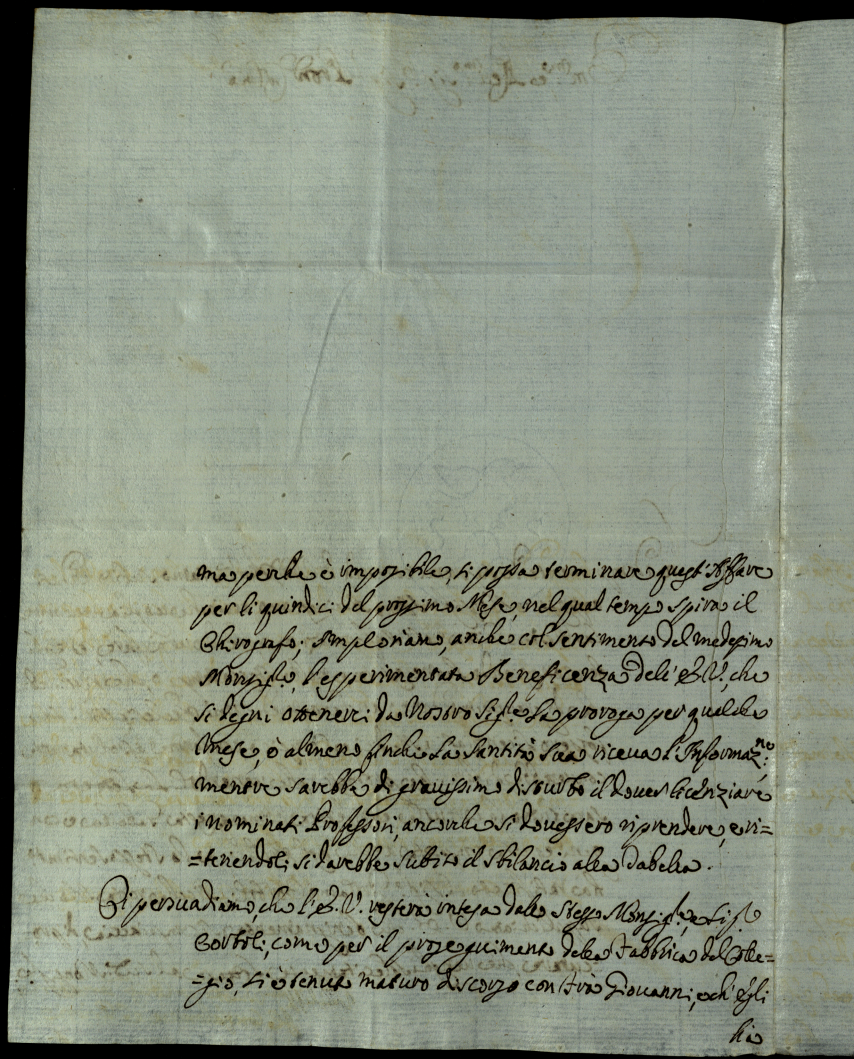 ma perche è impossibile, si possa terminare quest'Affare
per li quindici del prossimo Mese, nel qual tempo spira il
Chirografo; Imploriamo, anche col sentimento del medesimo
Monsig.re, l'esperimentata Beneficenza dell'E. V., che
si degni ottenerci da Nostro Sig.re la proroga per qualche
Mese, ò almeno finche la Santità Sua riceva l'Informaz.ne:
mentre sarebbe di gravissimo disturbo il dover licenziare
i nominati Professori, ancorche si dovessero riprendere, e ri=
=tenendoli si darebbe subito il sbilancio alla Tabella.
Ci persuadiamo, che l'E. V. resterà intesa dallo stesso Monsig.re, e Sig.re
Bortoli, come per il proseguimento della Fabbrica del Colle=
=gio, si è tenuto maturo discorso con Frà Giovanni, e ch'Egli
hà